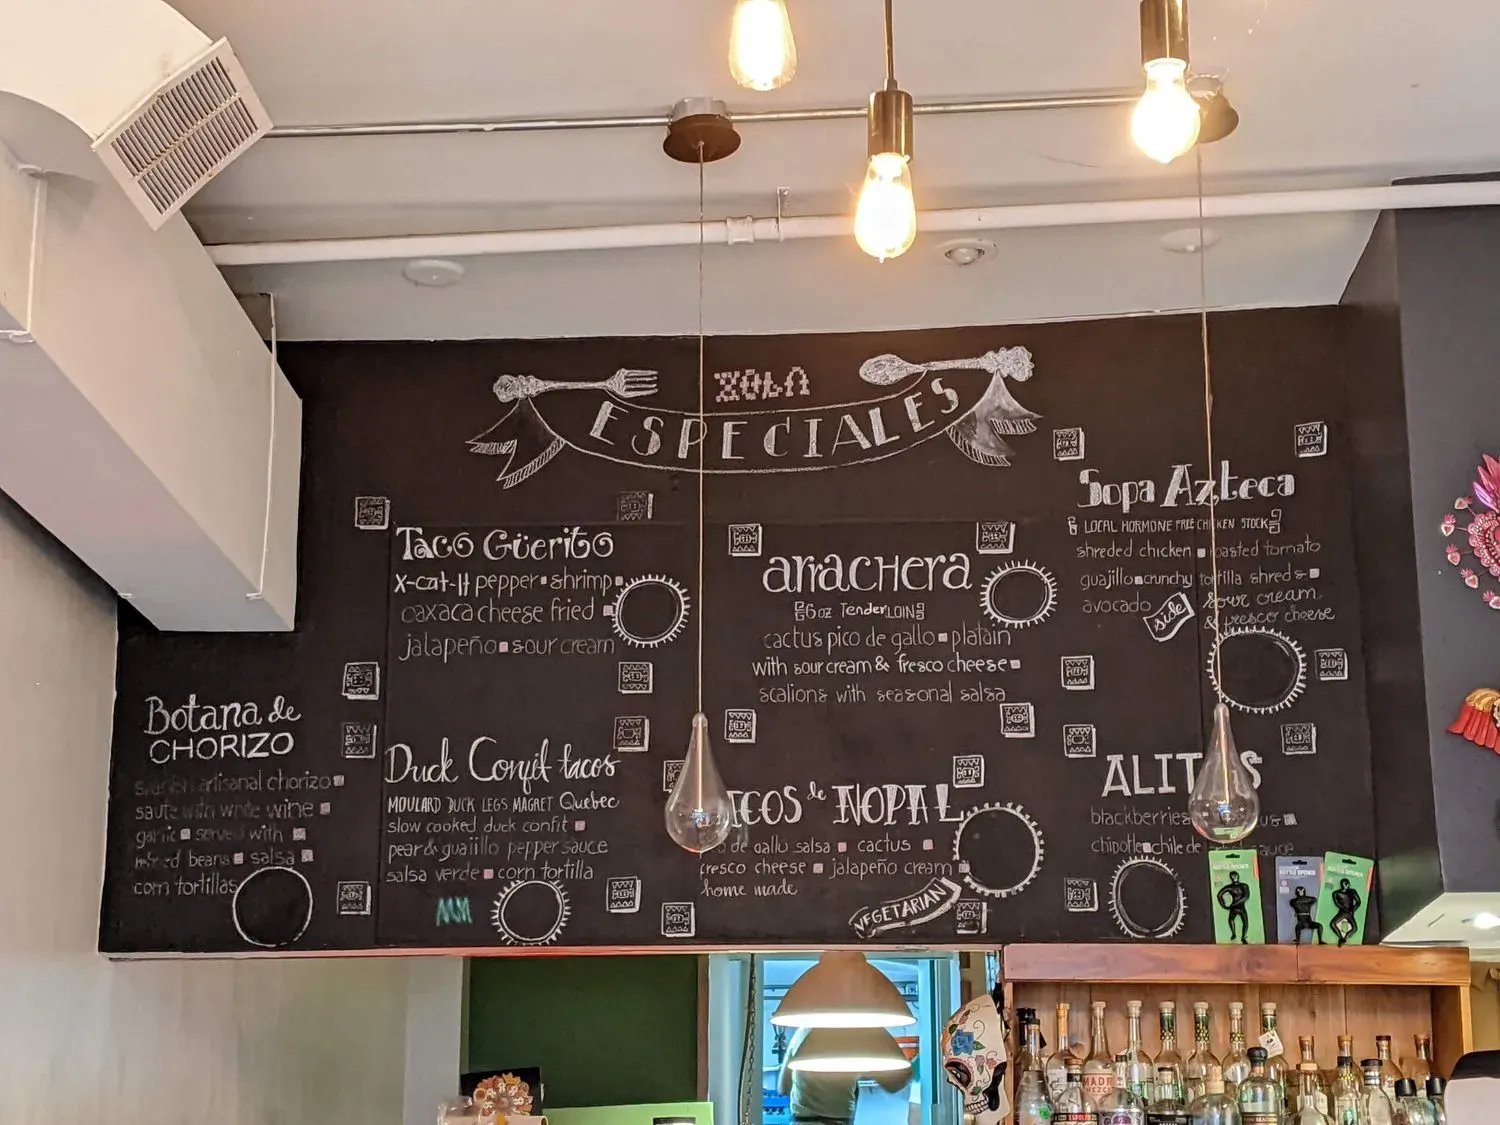 XOLA
ESPECIALES
Taco Güerito
X-cat-H pepper shrimp
oaxaca cheese fried
jalapeño sour cream
arrachera
6 oz TenderLOIN
cactus pico de gallo platain
with sour cream & fresco cheese
scalions with seasonal salsa
Sopa Azteca
LOCAL HORMONE FREE CHICKEN STOCK
shreded chicken roasted tomato
guajillo crunchy tortilla shreds
avocado side sour cream
& fresco cheese
Botana de
CHORIZO
artisanal chorizo
saute with white wine
garlic served with
refried beans salsa
corn tortillas
Duck Confit tacos
MOULARD DUCK LEGS MAGRET Quebec
slow cooked duck confit
pear & guajillo pepper sauce
salsa verde corn tortilla
DE NOPAL
de gallu salsa cactus
fresco cheese jalapeño cream
home made
VEGETARIAN
ALITAS
blackberries
chipotle chile de sauce
BOTTLE OPENER
BOTTLE OPENER
BOTTLE OPENER